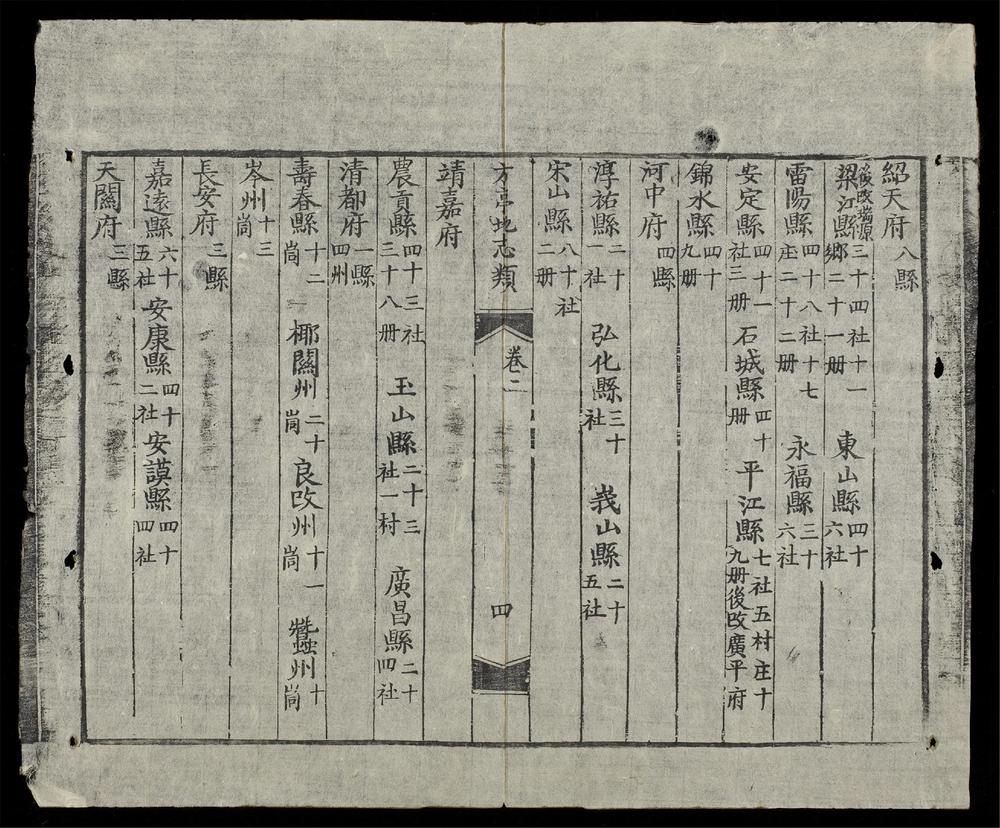 紹天府八縣
梁江縣後改瑞源三十四社十一鄉二十一册 東山縣四十六社
雷陽縣四十八社十七庄二十二册 永福縣三十六社
安定縣四十一社三册 石城縣四十册 平江縣七社五村庄十九册後改廣平府
錦水縣四十九册
河中府四縣
淳祐縣二十一社 弘化縣三十社 峩山縣二十五社
宋山縣八十社二册
方亭地志類 卷二 四
靖嘉府
農貢縣四十三社三十八册 玉山縣二十三社一村 廣昌縣二十四社
清都府一縣四州
壽春縣十二峝 椰關州二十峝 良政州十一峝 蠶州十峝
岑州十三峝
長安府三縣
嘉遠縣六十五社 安康縣四十二社 安謨縣四十四社
天關府三縣